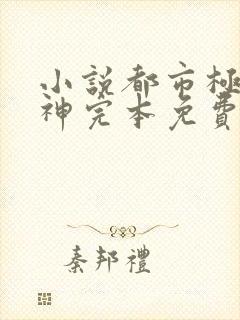 小説都市極
神完本免費
秦邦禮